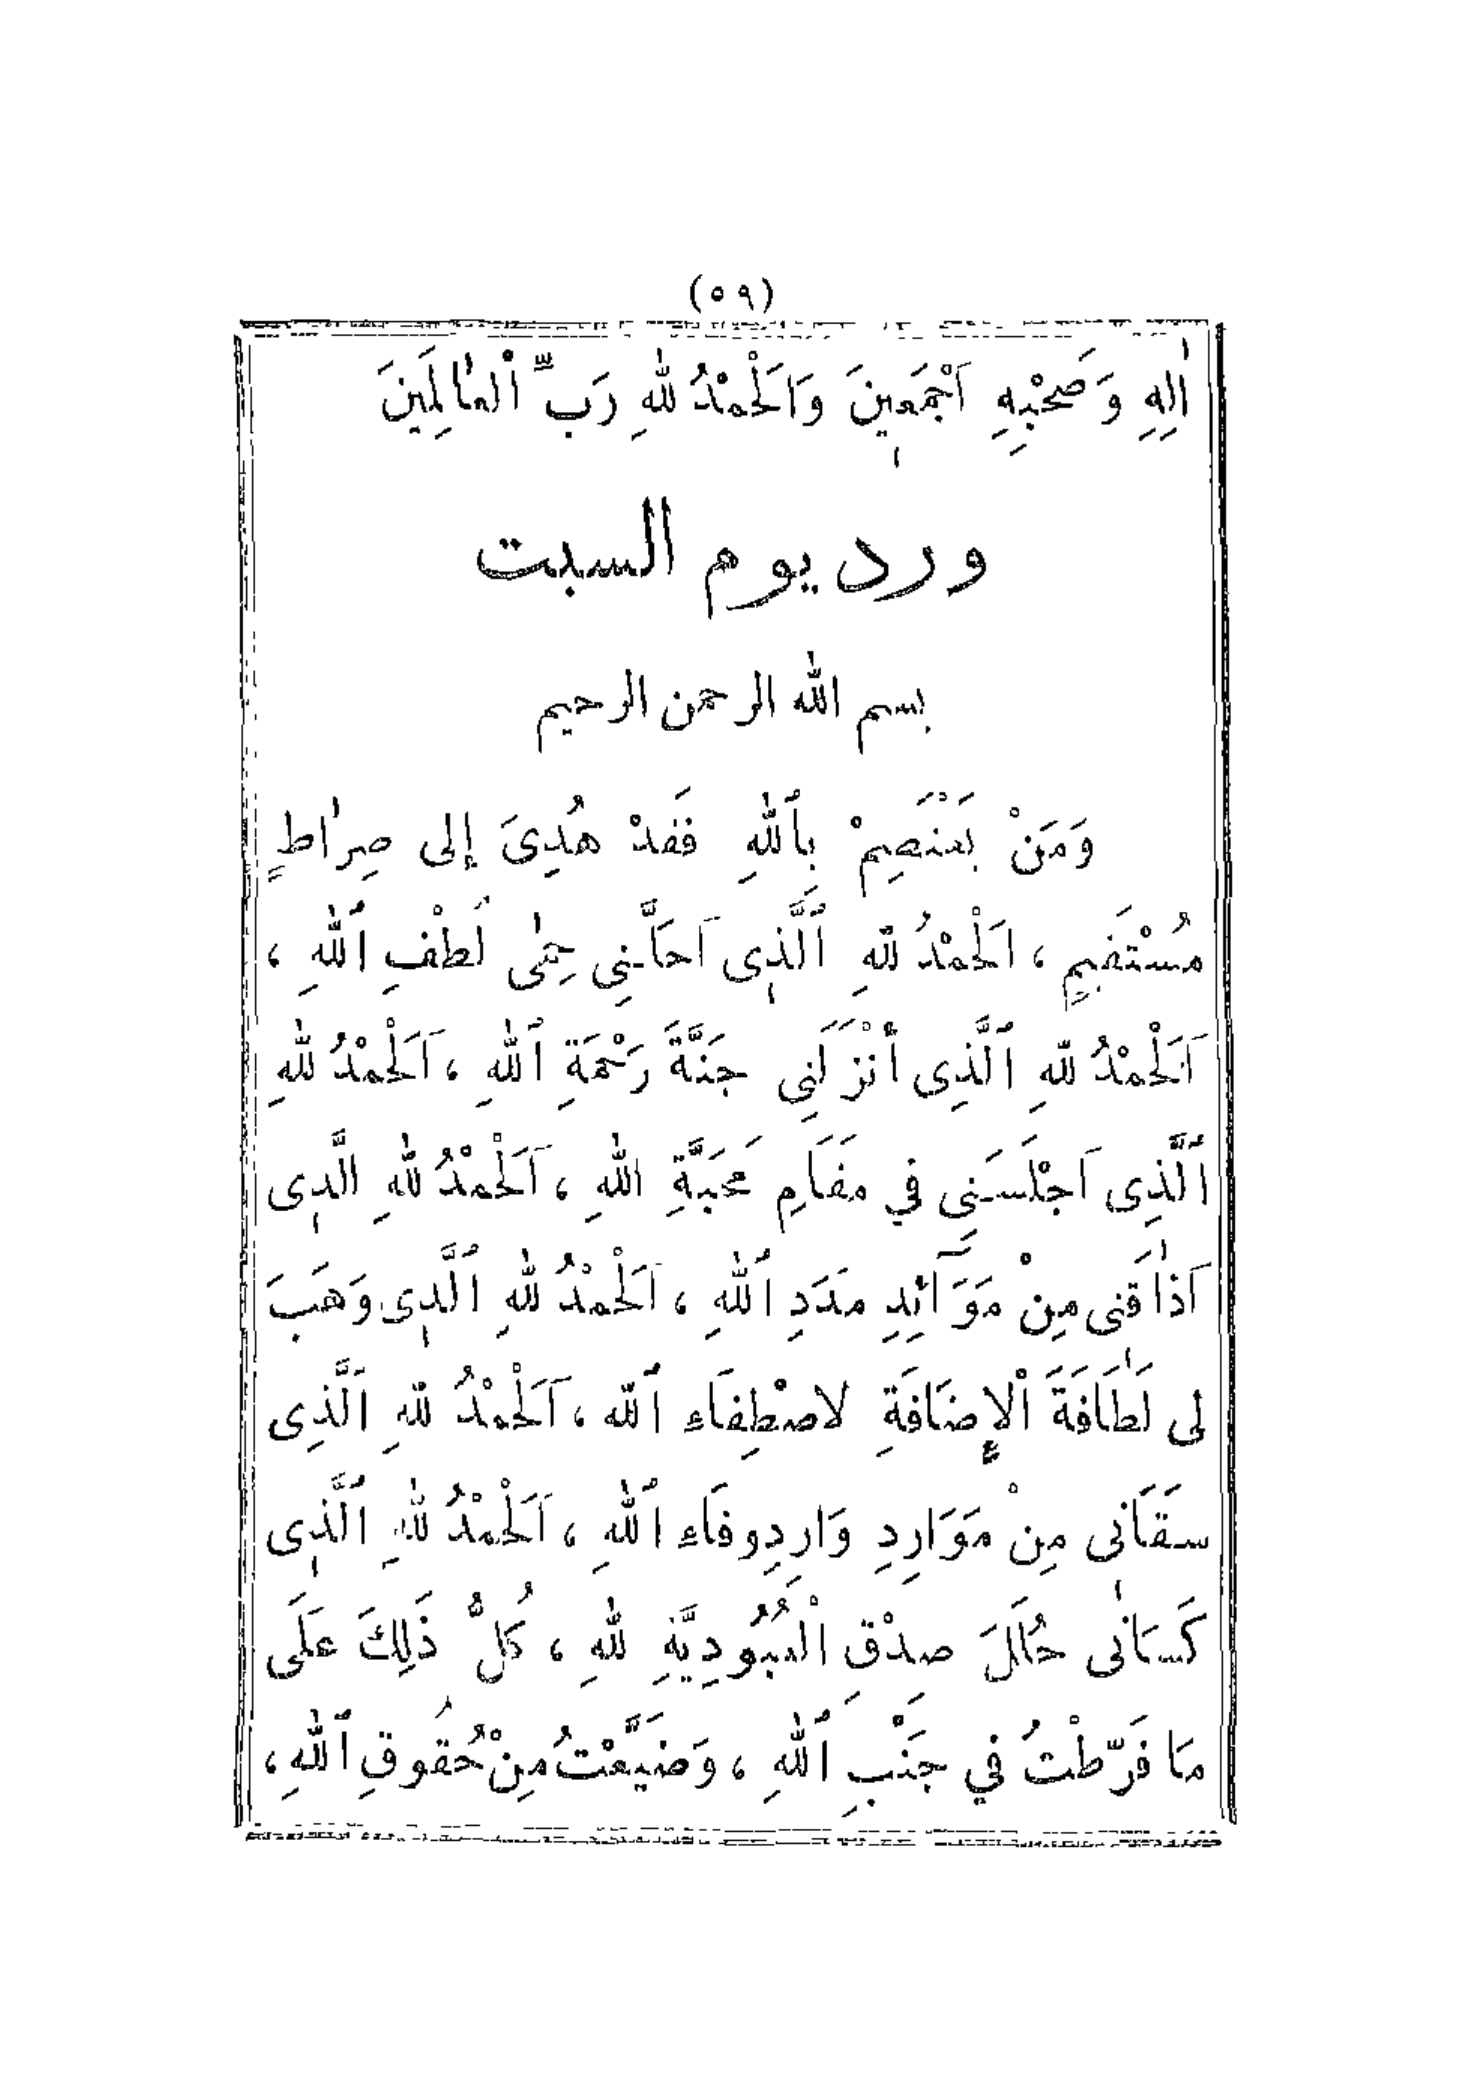 (٥٩)
اٰلِهِ وَصَحْبِهِ اَجْمَعِينَ وَالْحَمْدُ لِلّٰهِ رَبِّ الْعٰالَمِينَ
ورد يوم السبت
بسم الله الرحمن الرحيم
وَمَنْ يَعْتَصِمْ بِٱللّٰهِ فَقَدْ هُدِىَ إِلى صِرٰاطٍ
مُسْتَقِيمٍ ، اَلْحَمْدُ لِلّٰهِ ٱلَّذِى اَحَلَّنِي حِمٰى لُطْفِ ٱللّٰهِ ،
اَلْحَمْدُ لِلّٰهِ ٱلَّذِى أَنْزَلَنِي جَنَّةَ رَحْمَةِ ٱللّٰهِ ، اَلْحَمْدُ لِلّٰهِ
ٱلَّذِى اَجْلَسَنِي فِي مَقَامِ مَحَبَّةِ اللّٰهِ ، اَلْحَمْدُ لِلّٰهِ الَّذِى
اَذٰاقَنِى مِنْ مَوَآئِدِ مَدَدِ ٱللّٰهِ ، اَلْحَمْدُ لِلّٰهِ ٱلَّذِى وَهَبَ
لِى لَطَافَةَ الْإِضَافَةِ لاصْطِفَاءِ ٱللّٰه ، اَلْحَمْدُ لِلّٰهِ الَّذِى
سَقَانِى مِنْ مَوَارِدِ وَارِدِ وِفَاءِ ٱللّٰهِ ، اَلْحَمْدُ لِلّٰهِ ٱلَّذِى
كَسَانِى حُلَلَ صِدْقِ الْعُبُودِيَّةِ لِلّٰهِ ، كُلُّ ذَلِكَ عَلَى
مَا فَرَّطْتُ فِي جَنْبِ ٱللّٰهِ ، وَضَيَّعْتُ مِنْ حُقُوقِ ٱللّٰهِ ،